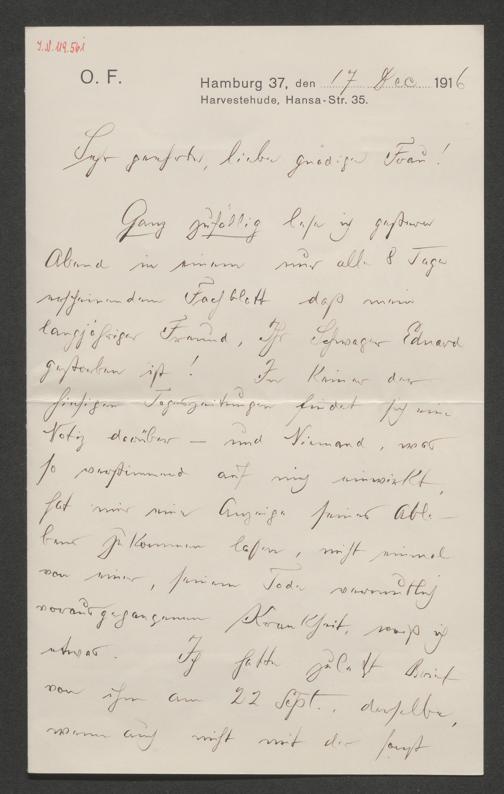 J.N. 119.561
O. F.
Hamburg 37, den 17 Dec 1916
Harvestehude, Hansa-Str. 35.
Sehr geehrte, liebe gnädige Frau!
Ganz zufällig lese ich gestern
Abend in einem nur alle 8 Tage
erscheinendem Fachblatt daß mein
langjähriger Freund, Ihr Schwager Eduard
gestorben ist! In keiner der
hiesigen Tageszeitungen findet sich eine
Notiz darüber — und Niemand, was
so verstimmend auf mich einwirkt,
hat mir eine Anzeige seines Able-
bens zukommen lassen, nicht einmal
von einer, seinem Tode vermutlich
vorausgegangenen Krankheit, weiß ich
etwas. Ich hatte zuletzt Brief
von ihm am 22 Sept., derselbe,
wenn auch nicht mit der sonst